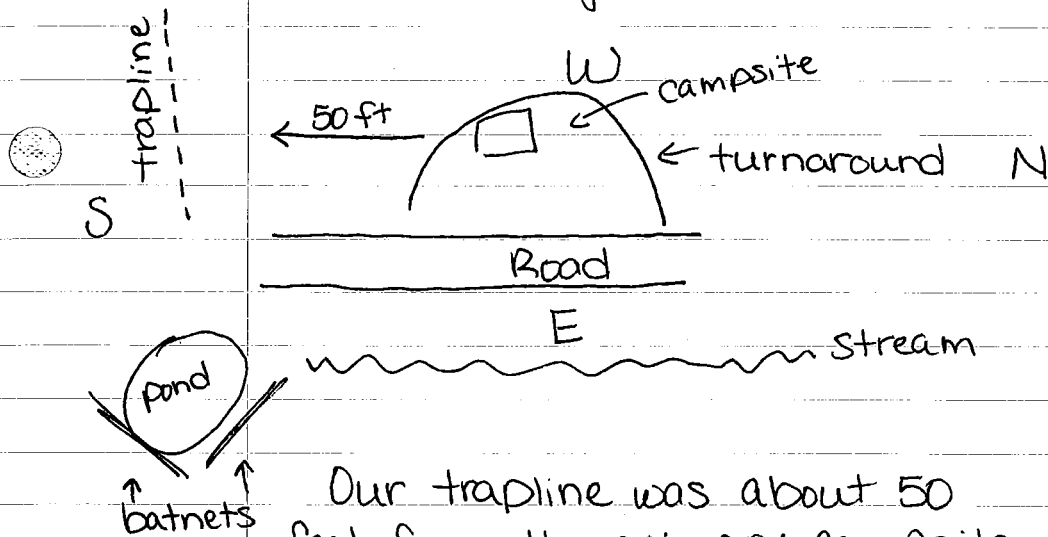 trapline
W
campsite
50 ft
turnaround N
S
Road
E
stream
pond
Our trapline was about 50
batnets